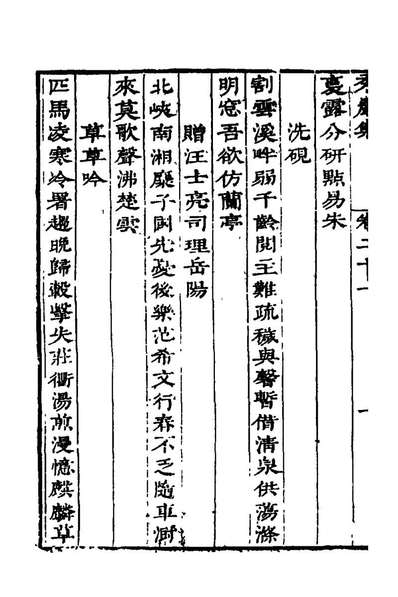 卷二十一
裛露分研點易朱
洗硯
割雲溪畔弱千齡閱主難疏穢與馨暫借清泉供蕩滌
明窓吾欲仿蘭亭
贈汪士亮司理岳陽
北峽南湘廳子困先憂後樂范希文行春不乏隨車澍
來莫歌聲沸楚雲
草草吟
匹馬凌寒冷署趨晚歸轂擊失莊衢湯煎漫憶麒麟草